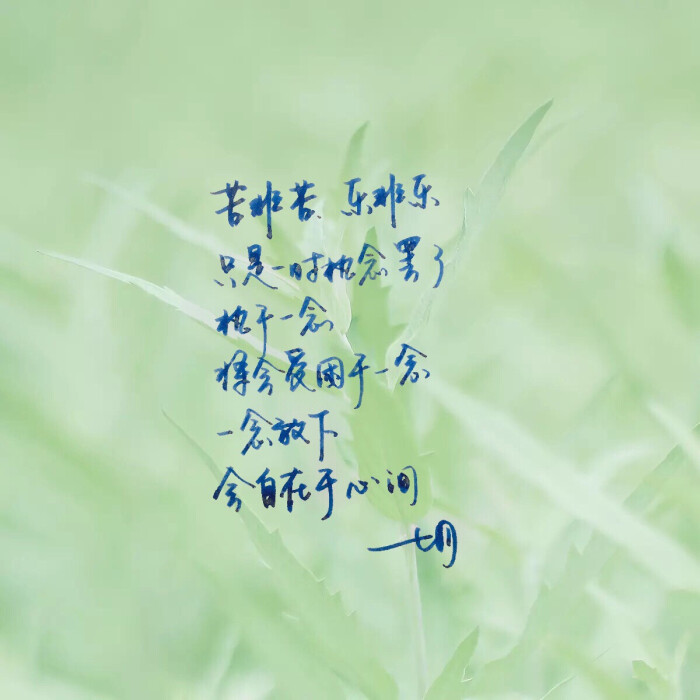 苦非苦、乐非乐
只是一时执念罢了
执于一念
将会受困于一念
一念放下
会自在于心间
——七月